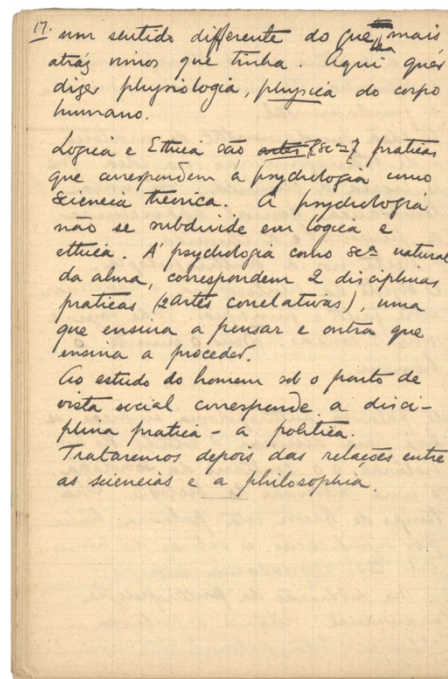 17. um sentido differente do que mais
atráz vimos que tinha. Aqui quér
dizer physiologia, physica do corpo
humano.
Logica e Ethica são praticas
que correspondem á psychologia como
sciencia theorica. A psychologia
não se subdivide em logica e
ethica. A' psychologia como scª natural
da alma, correspondem 2 disciplinas
praticas (2 artes correlativas), uma
que ensina a pensar e outra que
ensina a proceder.
Ao estudo do homem sob o ponto de
vista social corresponde a disci-
plina pratica – a politica.
Trataremos depois das relações entre
as sciencias e a philosophia.